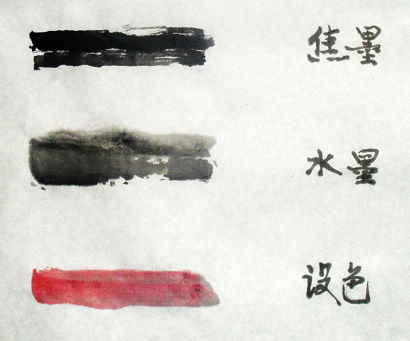 焦墨
水墨
设色